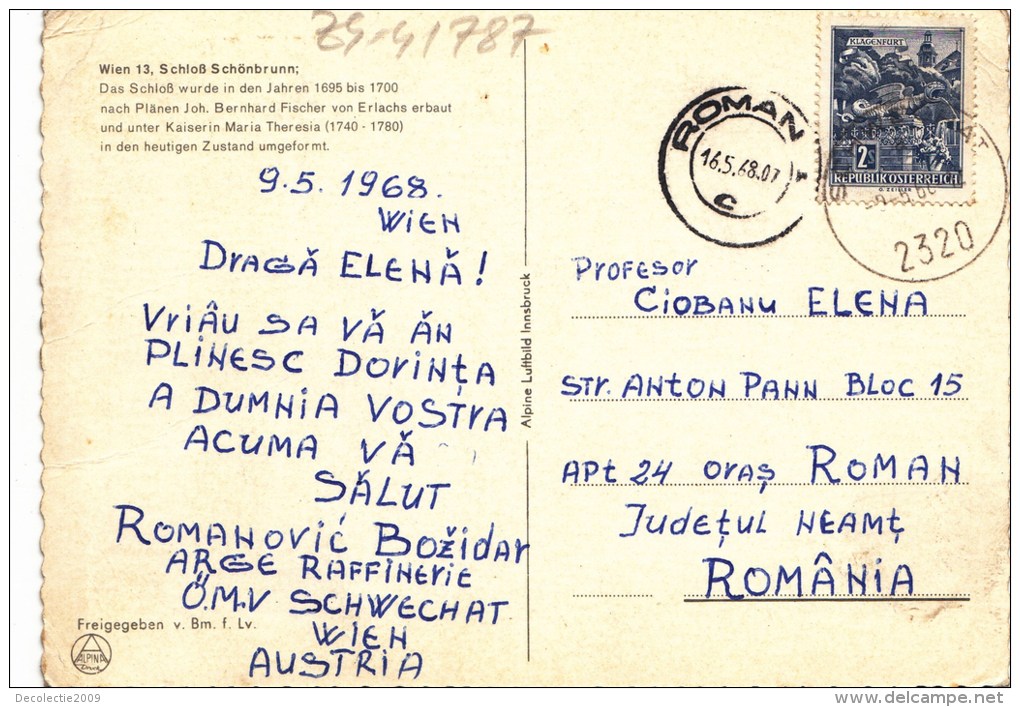 Z4-41787
Wien 13, Schloß Schönbrunn;
Das Schloß wurde in den Jahren 1695 bis 1700
nach Plänen Joh. Bernhard Fischer von Erlachs erbaut
und unter Kaiserin Maria Theresia (1740 - 1780)
in den heutigen Zustand umgeformt.
9.5. 1968.
WIEN
DRAGĂ ELENĂ!
VRIÂU SA VĂ ĂN
PLINESC DORINȚA
A DUMNIA VOSTRA
ACUMA VĂ
SĂLUT
ROMANOVIĆ BOŽIDAR
ARGE RAFFINERIE
Ö.M.V SCHWECHAT
WIEN
AUSTRIA
Freigegeben v. Bm. f. Lv.
ALPINA
Druck
Alpine Luftbild Innsbruck
KLAGENFURT
2s
REPUBLIK ÖSTERREICH
O. ZEILER
ROMAN
16.5.68.07
C
2320
PROFESOR
CIOBANU ELENA
STR. ANTON PANN BLOC 15
APT 24 ORAȘ ROMAN
JUDEȚUL NEAMȚ
ROMÂNIA
Decolectie2009
www.delcampe.net